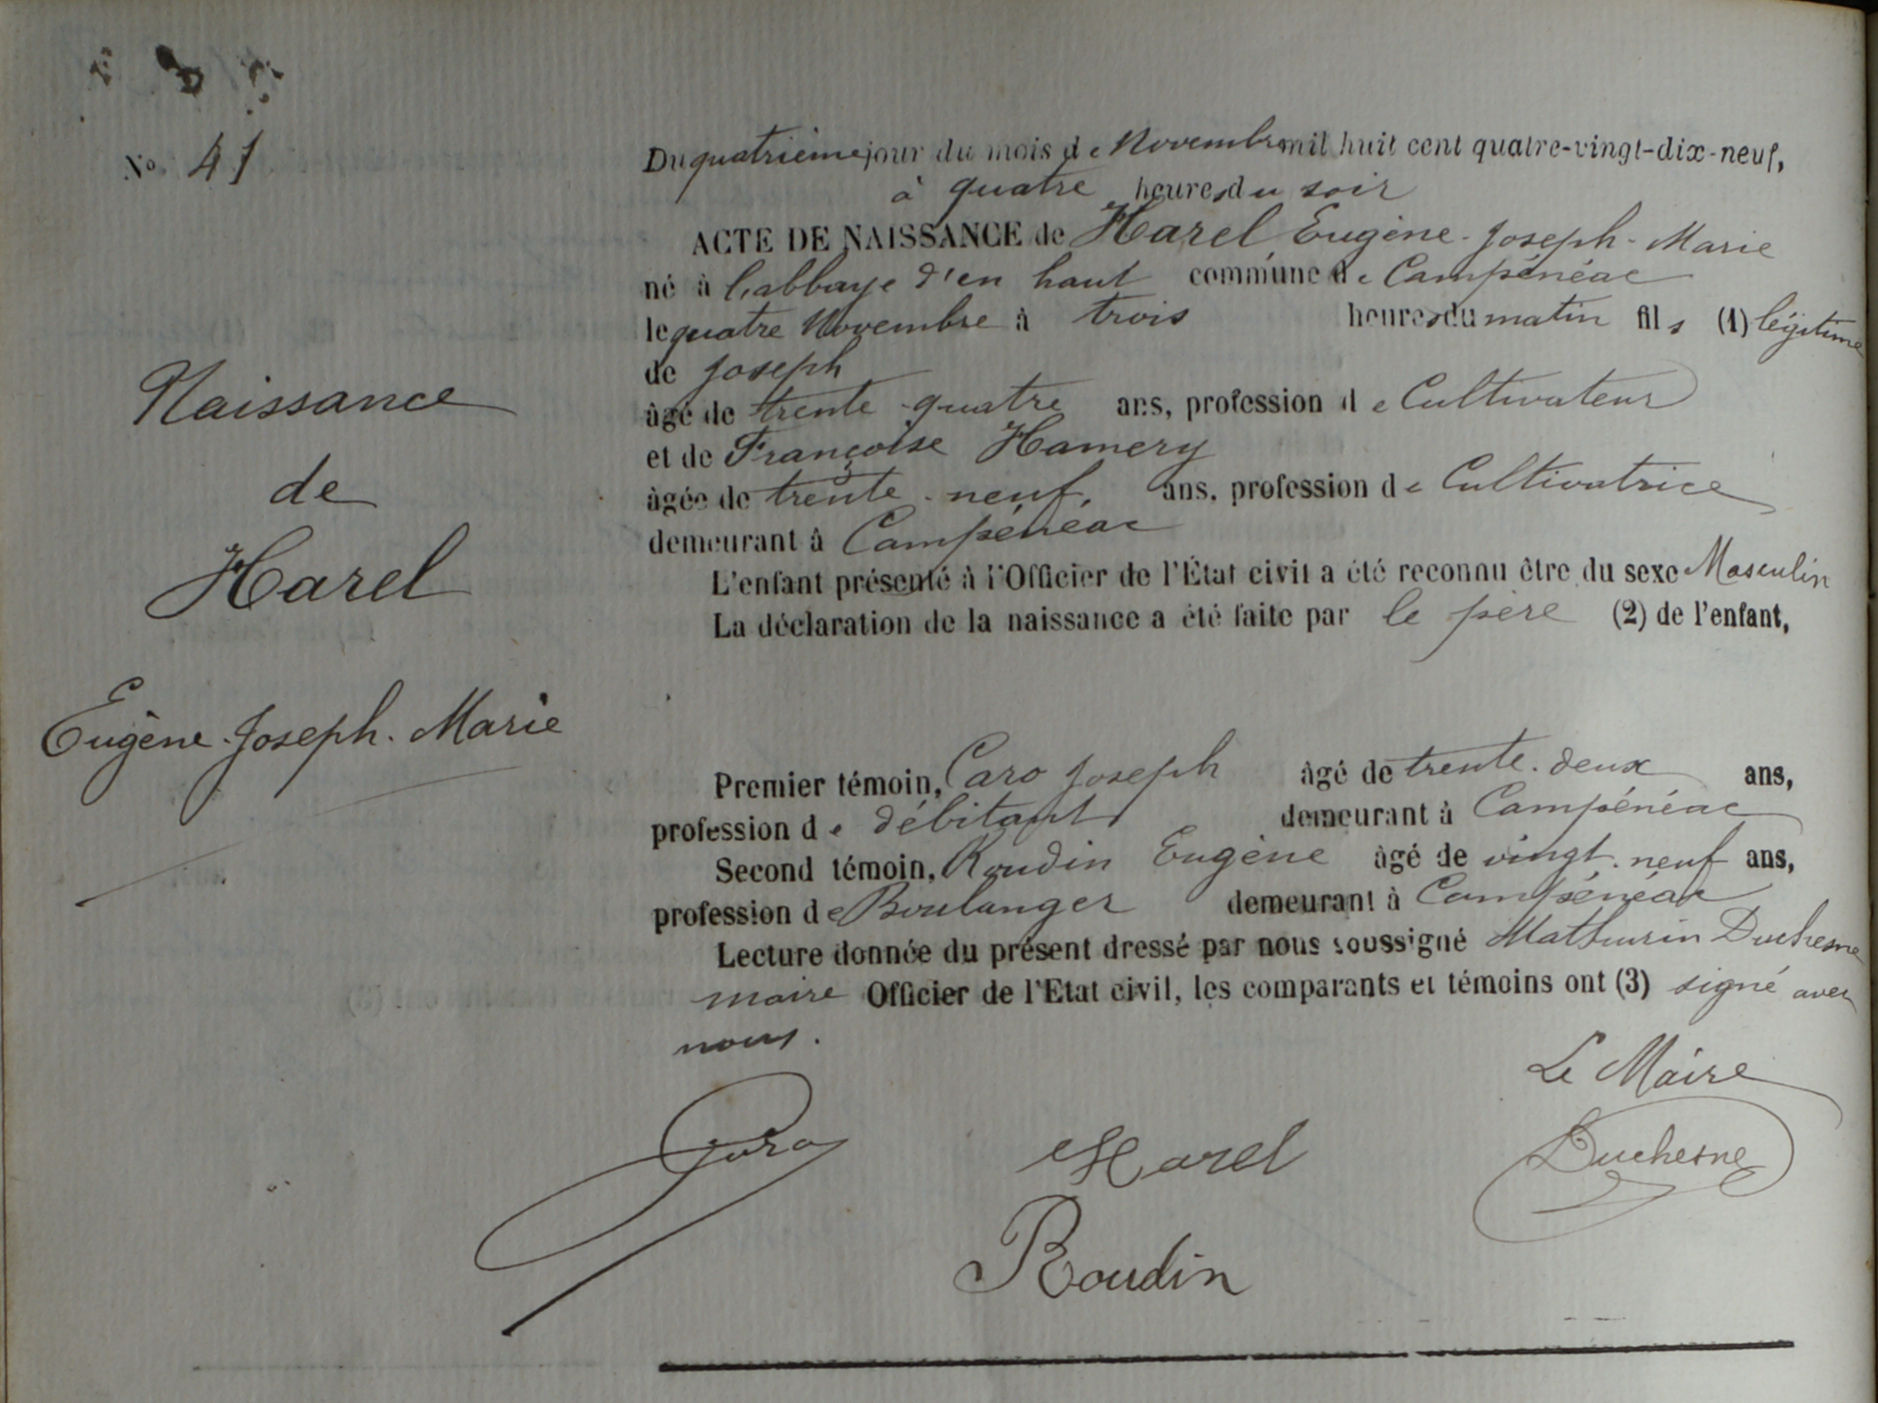 No 41
Naissance
de
Harel
Eugène-Joseph-Marie
Du quatrième jour du mois de Novembre mil huit cent quatre-vingt-dix-neuf,
à quatre heures du soir
ACTE DE NAISSANCE de Harel Eugène-Joseph-Marie
né à l'abbaye d'en haut commune de Campénéac
le quatre Novembre à trois heures du matin fils (1) légitime
de Joseph
âgé de trente-quatre ans, profession de Cultivateur
et de Françoise Hamery
âgée de trente-neuf, ans, profession de Cultivatrice
demeurant à Campénéac
L'enfant présenté à l'Officier de l'État civil a été reconnu être du sexe Masculin
La déclaration de la naissance a été faite par le père (2) de l'enfant,
Premier témoin, Caro Joseph âgé de trente-deux ans,
profession de débitant demeurant à Campénéac
Second témoin, Roudin Eugène âgé de vingt-neuf ans,
profession de Boulanger demeurant à Campénéac
Lecture donnée du présent dressé par nous soussigné Mathurin Duchesne
maire Officier de l'Etat civil, les comparants et témoins ont (3) signé avec
nous.
Le Maire
Caro Harel Duchesne
Roudin